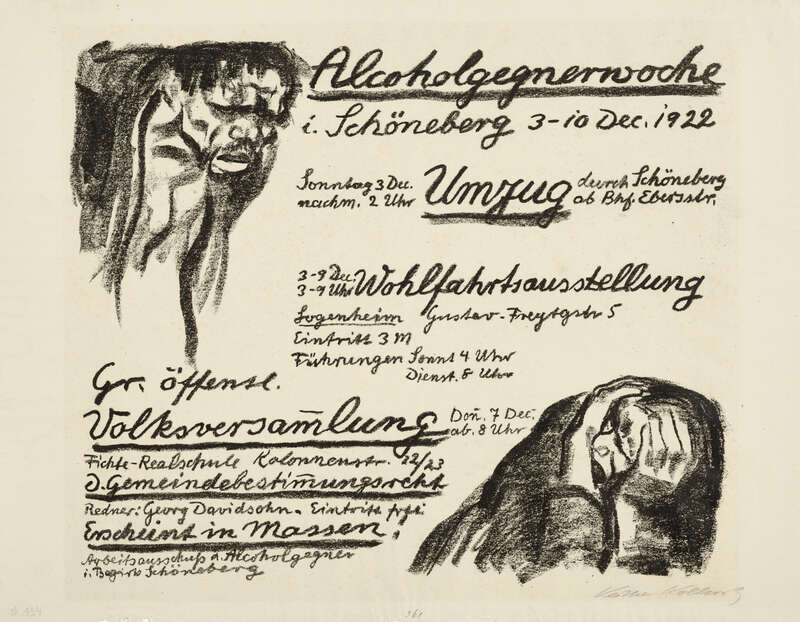 Alcoholgegnerwoche
i. Schöneberg 3-10 Dec. 1922
Sonntag 3 Dec.
nachm. 2 Uhr
Umzug
durch Schöneberg
ab Bhf. Ebersstr.
3-9 Dec.
3-9 Uhr
Wohlfahrtsausstellung
Logenheim Gustav-Freytgstr 5
Eintritt 3 M
Führungen Sonnt 4 Uhr
Dienst. 8 Uhr
Gr. öffentl.
Volksversam̅lung
Don̅. 7 Dec.
ab. 8 Uhr
Fichte-Realschule Kolonnenstr. 22/23
D. Gemeindebestim̅ungsrecht
Redner: Georg Davidsohn. Eintritt frei
Erscheint in Massen!
Arbeitsausschuß d. Alcoholgegner
i. Bezirk Schöneberg
Käthe Kollwitz